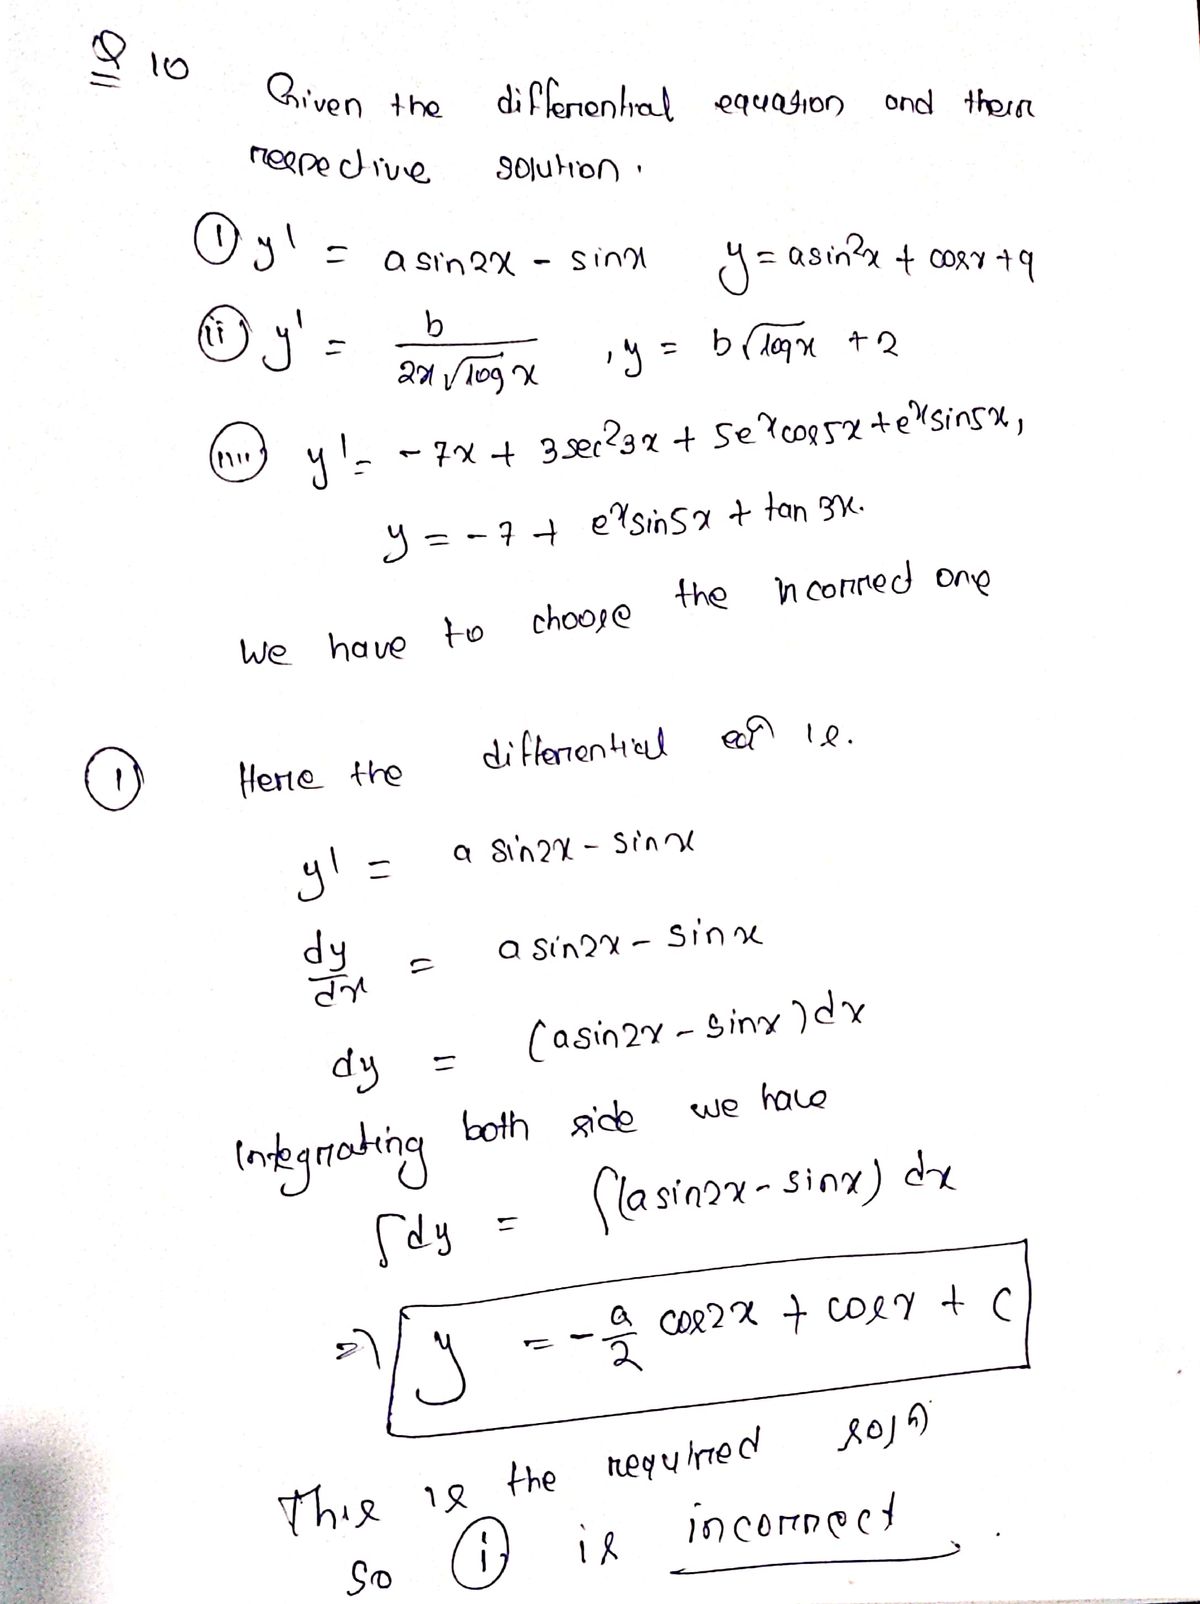 Q 10
Given the differential equation and their
respective solution.
(i) y' = a sin2x - sinx y = asin²x + cosx + 9
(ii) y' = b/(2x√log x) , y = b√logx + 2
(iii) y' = -7x + 3sec²3x + 5eˣcos5x + eˣsin5x,
y = -7 + eˣsin5x + tan 3x.
We have to choose the incorrect one
(i) Here the differential eqn is.
y' = a sin2x - sinx
dy/dx = a sin2x - sinx
dy = (asin2x - sinx)dx
Integrating both side we have
∫dy = ∫(asin2x - sinx) dx
=> y = -a/2 cos2x + cosx + C
This is the required soln
so (i) is incorrect.